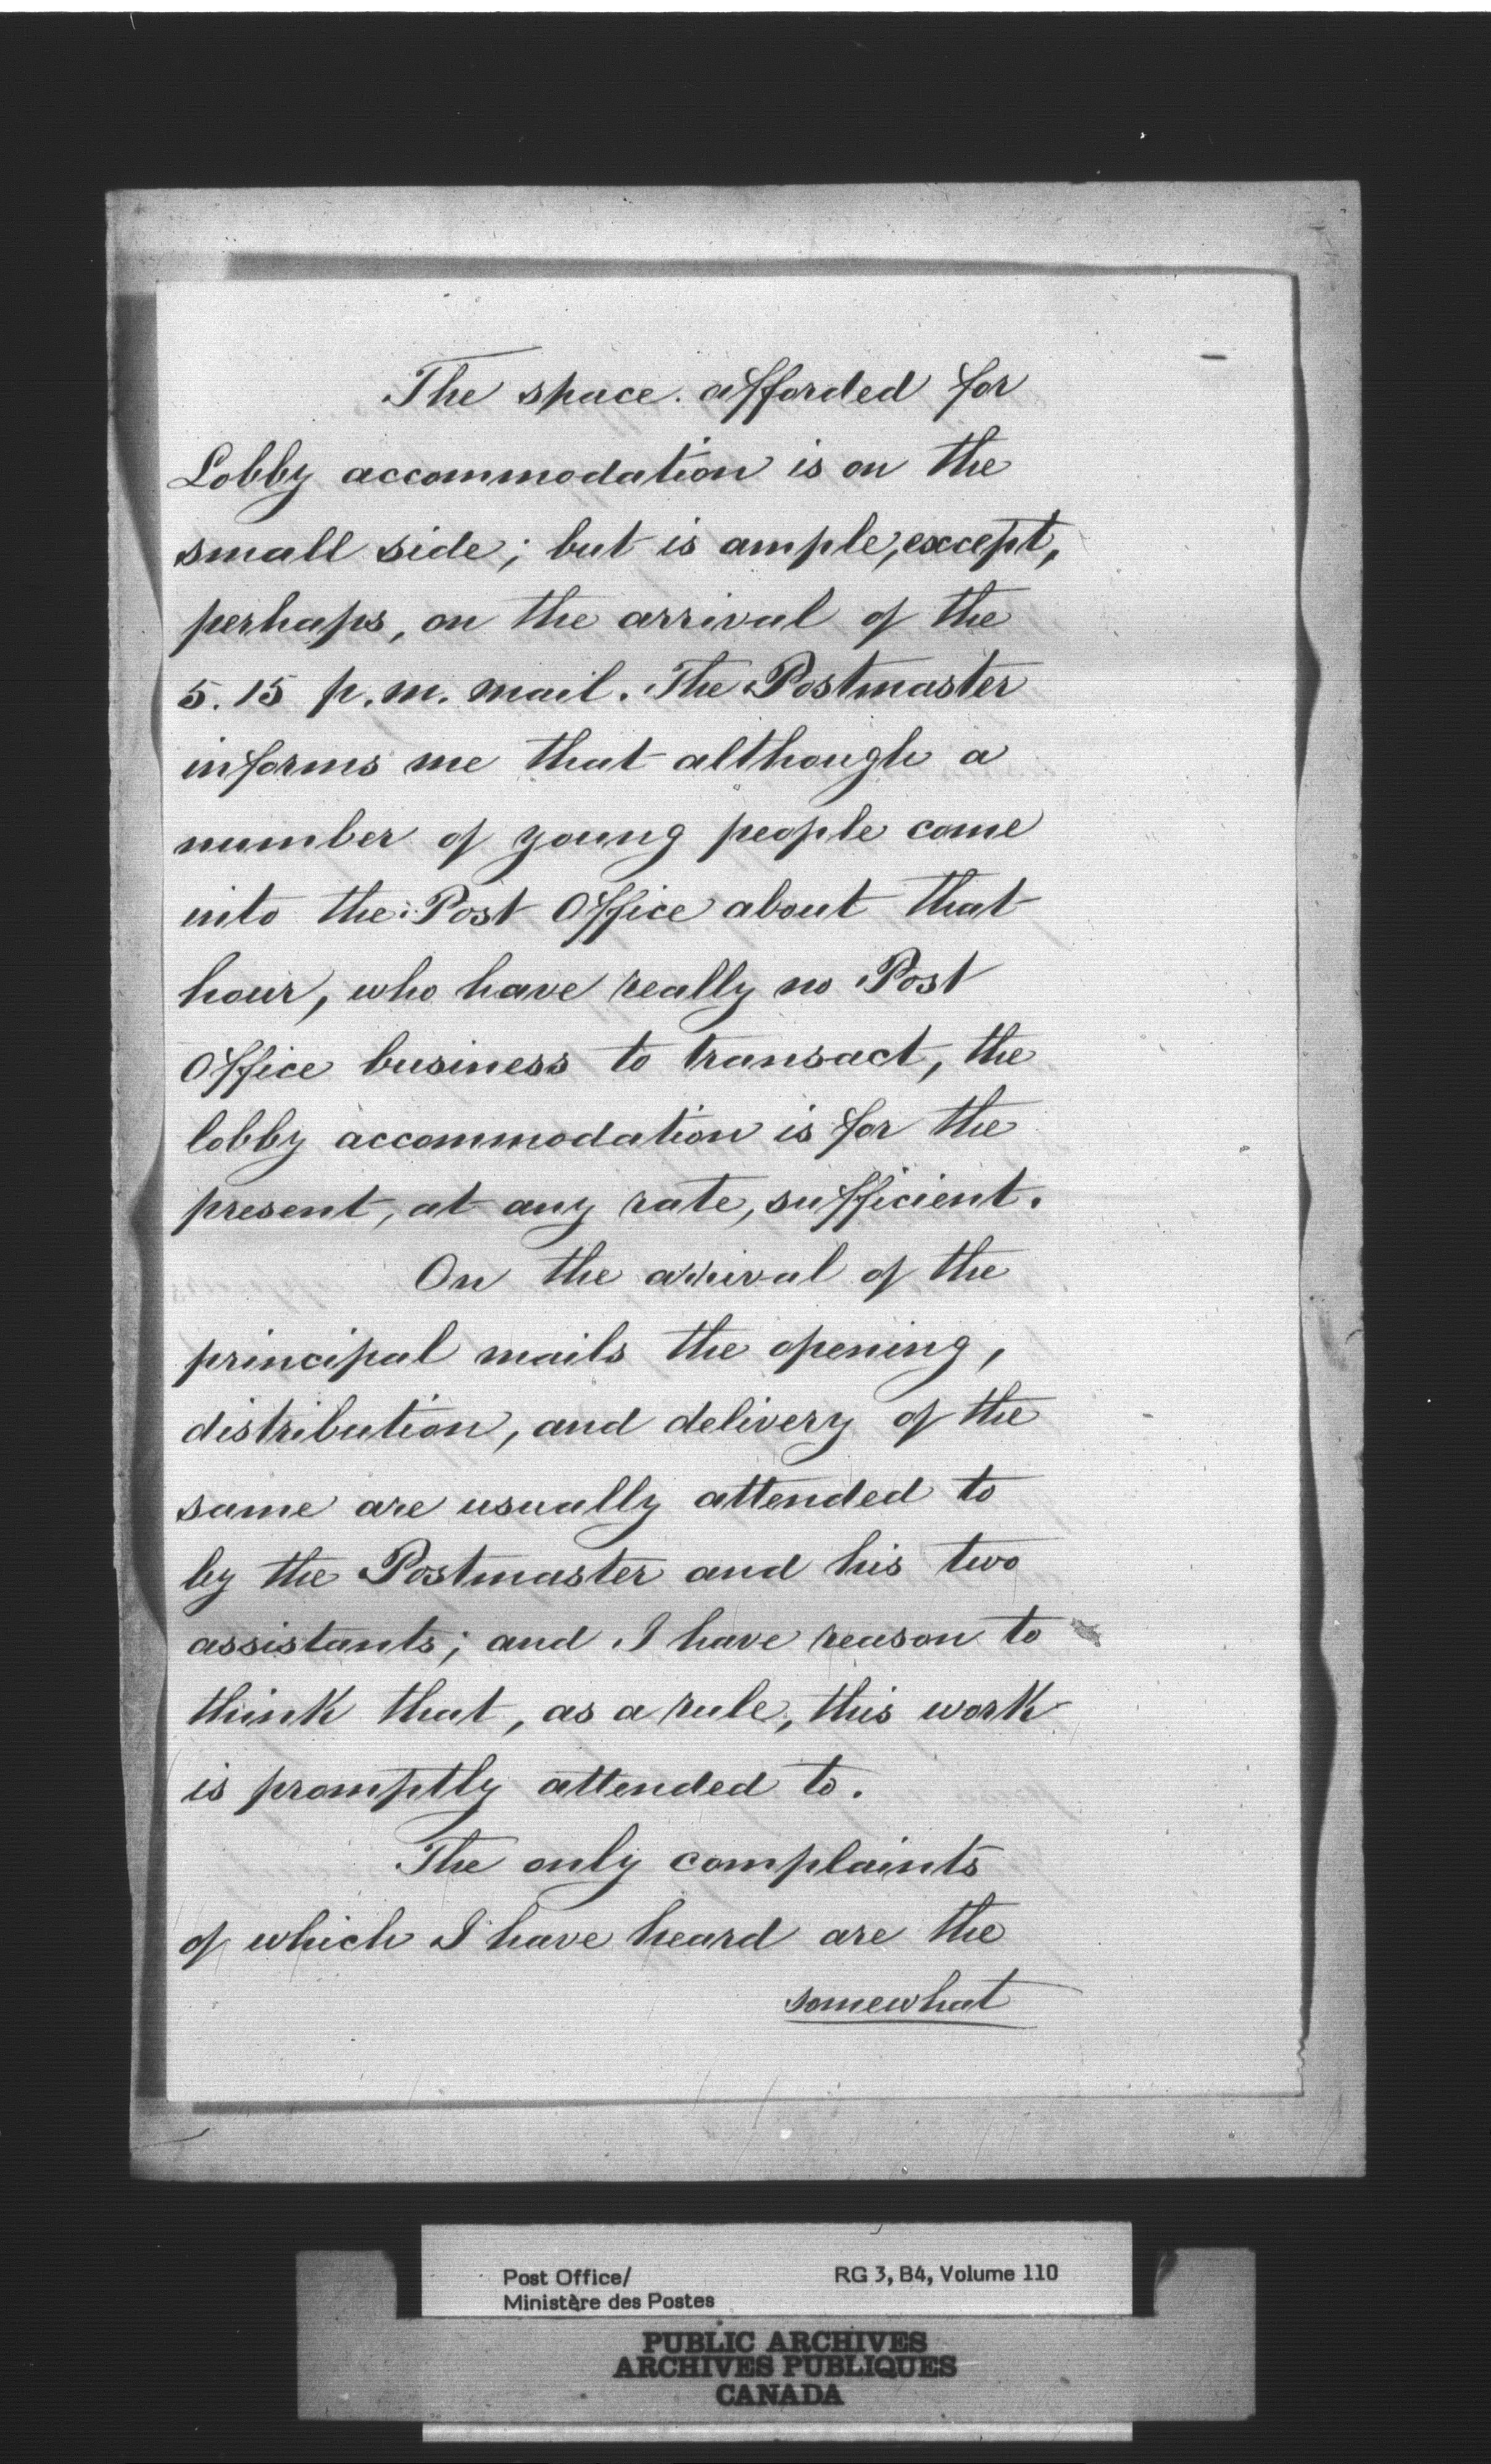 The space afforded for
Lobby accommodation is on the
small side; but is ample, except,
perhaps, on the arrival of the
5.15 p.m. mail. The Postmaster
informs me that although a
number of young people come
into the Post Office about that
hour, who have really no Post
Office business to transact, the
lobby accommodation is for the
present, at any rate, sufficient.
On the arrival of the
principal mails the opening,
distribution, and delivery of the
same are usually attended to
by the Postmaster and his two
assistants; and I have reason to
think that, as a rule, this work
is promptly attended to.
The only complaints
of which I have heard are the
somewhat
Post Office/
Ministère des Postes
RG 3, B4, Volume 110
PUBLIC ARCHIVES
ARCHIVES PUBLIQUES
CANADA